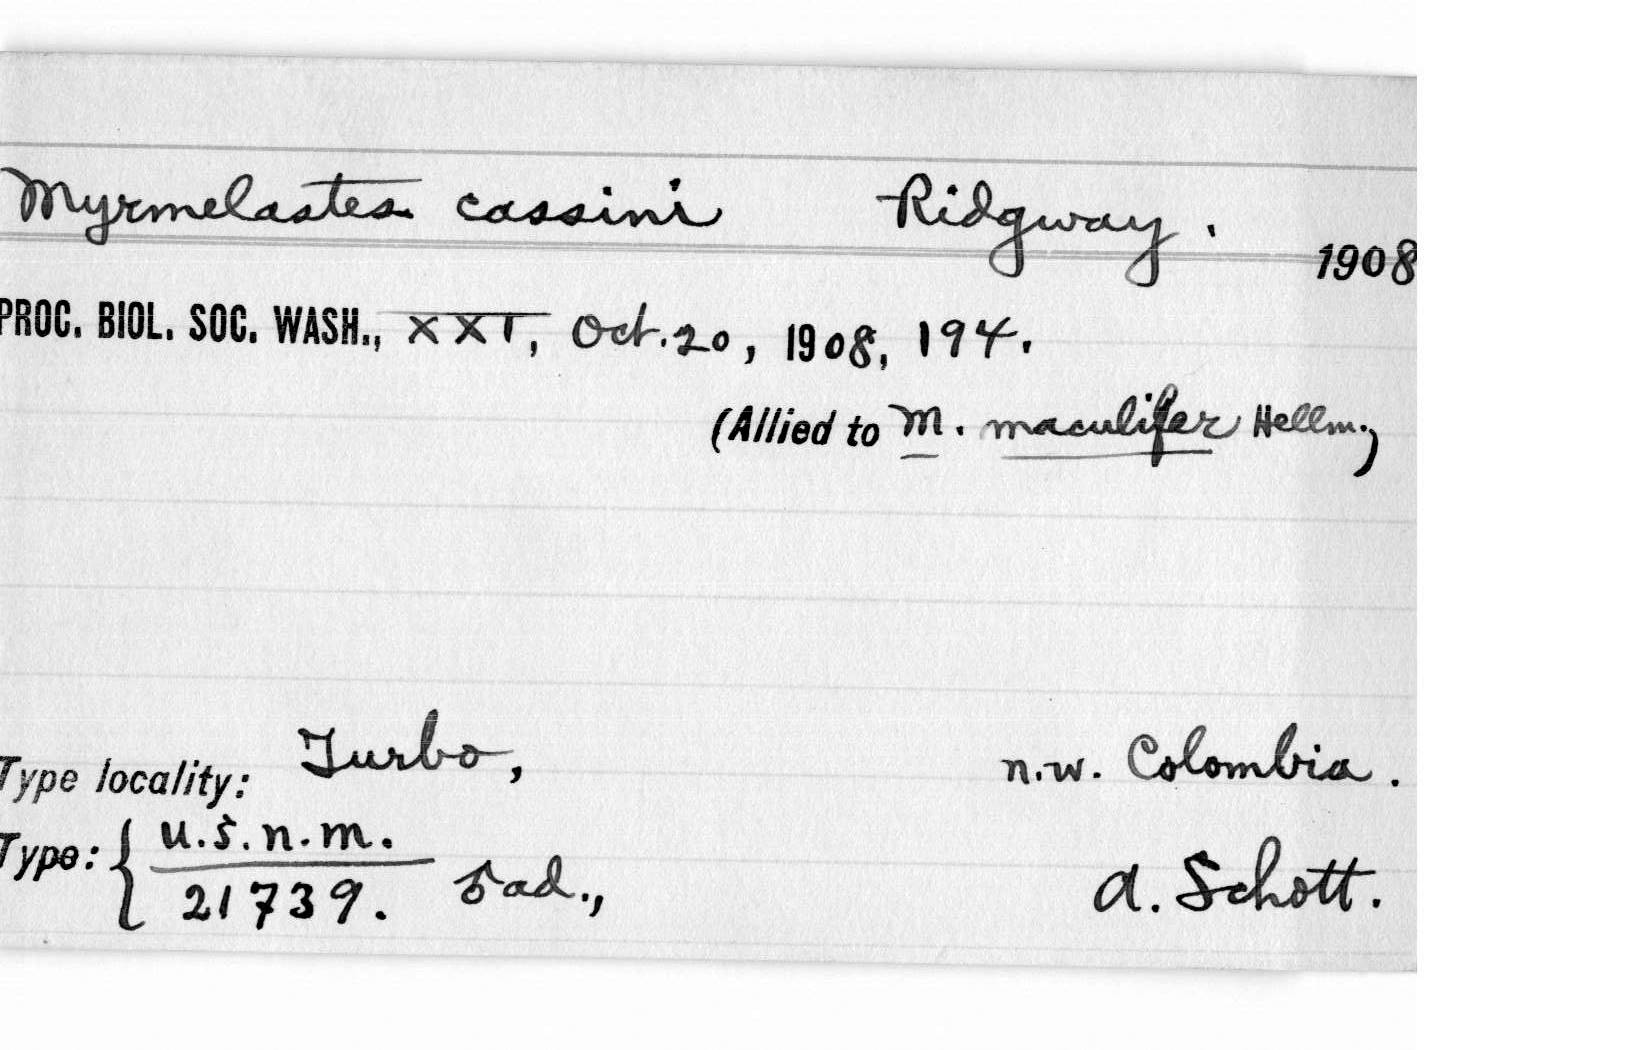 Myrmelastes cassini Ridgway.
1908
PROC. BIOL. SOC. WASH., XXI, Oct. 20, 1908, 194.
(Allied to M. maculifer Hellm.)
Type locality: Turbo, n.w. Colombia.
Type: { U.S.N.M.
21739. ad., A. Schott.